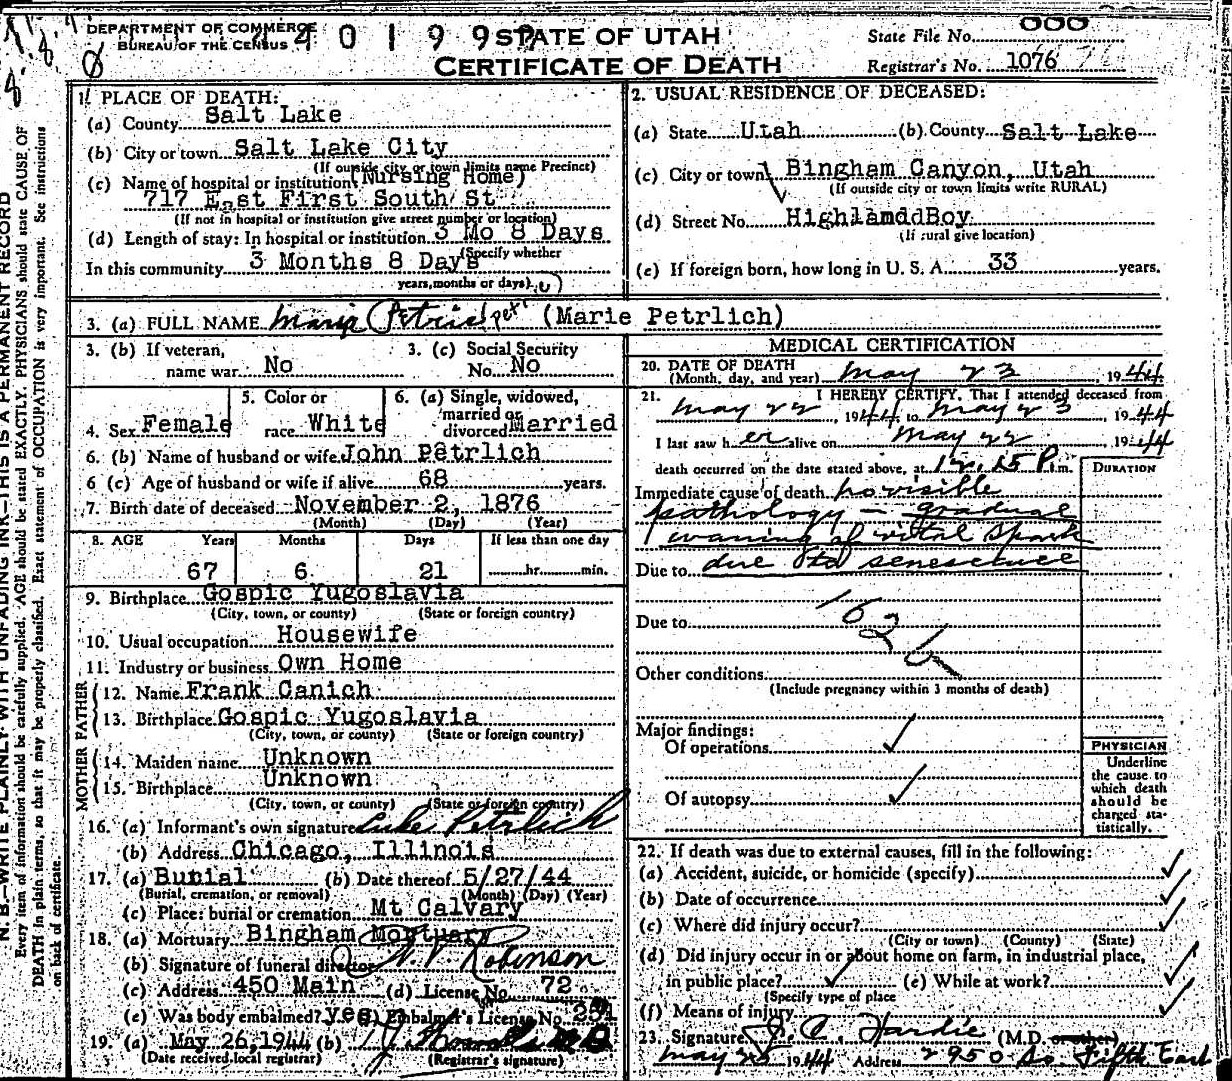 DEPARTMENT OF COMMERCE
BUREAU OF THE CENSUS
40199
STATE OF UTAH
CERTIFICATE OF DEATH
State File No. 000
Registrar's No. 1076
N. B.—WRITE PLAINLY WITH UNFADING INK—THIS IS A PERMANENT RECORD
Every item of information should be carefully supplied. AGE should be stated EXACTLY. PHYSICIANS should state CAUSE OF
DEATH in plain terms, so that it may be properly classified. Exact statement of OCCUPATION is very important. See instructions
on back of certificate.
1. PLACE OF DEATH:
(a) County Salt Lake
(b) City or town Salt Lake City
(If outside city or town limits name Precinct)
(c) Name of hospital or institution (Nursing Home)
717 East First South St
(If not in hospital or institution give street number or location)
(d) Length of stay: In hospital or institution 3 Mo 8 Days
(Specify whether
In this community 3 Months 8 Days
years, months or days)
2. USUAL RESIDENCE OF DECEASED:
(a) State Utah (b) County Salt Lake
(c) City or town Bingham Canyon, Utah
(If outside city or town limits write RURAL)
(d) Street No. HighlamddBoy
(If rural give location)
(e) If foreign born, how long in U. S. A. 33 years.
3. (a) FULL NAME Marie (Marie Petrlich)
3. (b) If veteran, name war No
3. (c) Social Security No. No
4. Sex Female
5. Color or race White
6. (a) Single, widowed, married or divorced Married
6. (b) Name of husband or wife John Petrlich
6 (c) Age of husband or wife if alive 68 years.
7. Birth date of deceased November 2, 1876
(Month) (Day) (Year)
8. AGE Years Months Days If less than one day
67 6 21 hr. min.
9. Birthplace Gospic Yugoslavia
(City, town, or county) (State or foreign country)
10. Usual occupation Housewife
11. Industry or business Own Home
FATHER
12. Name Frank Canich
13. Birthplace Gospic Yugoslavia
(City, town, or county) (State or foreign country)
MOTHER
14. Maiden name Unknown
15. Birthplace Unknown
(City, town, or county) (State or foreign country)
16. (a) Informant's own signature Luke Petrlich
(b) Address Chicago, Illinois
17. (a) Burial (b) Date thereof 5/27/44
(Burial, cremation, or removal) (Month) (Day) (Year)
(c) Place: burial or cremation Mt Calvary
18. (a) Mortuary Bingham Mortuary
(b) Signature of funeral director Robinson
(c) Address 450 Main (d) License No. 72
(e) Was body embalmed? yes Embalmer's License No. 231
19. (a) May 26, 1944 (b)
(Date received local registrar) (Registrar's signature)
MEDICAL CERTIFICATION
20. DATE OF DEATH
(Month, day, and year) May 23, 1944
21. I HEREBY CERTIFY, That I attended deceased from
May 22, 1944 to May 23 1944
I last saw h er alive on May 22 1944
death occurred on the date stated above, at 12.15 P. m.
DURATION
Immediate cause of death no visible
pathology — gradual
waning of vital spark
Due to due to senescence
Due to
162b
Other conditions
(Include pregnancy within 3 months of death)
Major findings:
Of operations ✓
Of autopsy ✓
PHYSICIAN
Underline
the cause to
which death
should be
charged sta-
tistically.
22. If death was due to external causes, fill in the following:
(a) Accident, suicide, or homicide (specify) ✓
(b) Date of occurrence ✓
(c) Where did injury occur? ✓
(City or town) (County) (State)
(d) Did injury occur in or about home on farm, in industrial place,
in public place? ✓ (e) While at work? ✓
(Specify type of place
(f) Means of injury ✓
23. Signature J. C. Hardie (M.D. or other)
May 25 1944 Address 2950 So. Fifth East